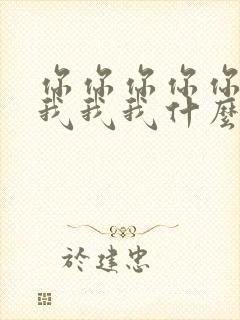 你你你你你
我我我什麼
於建忠